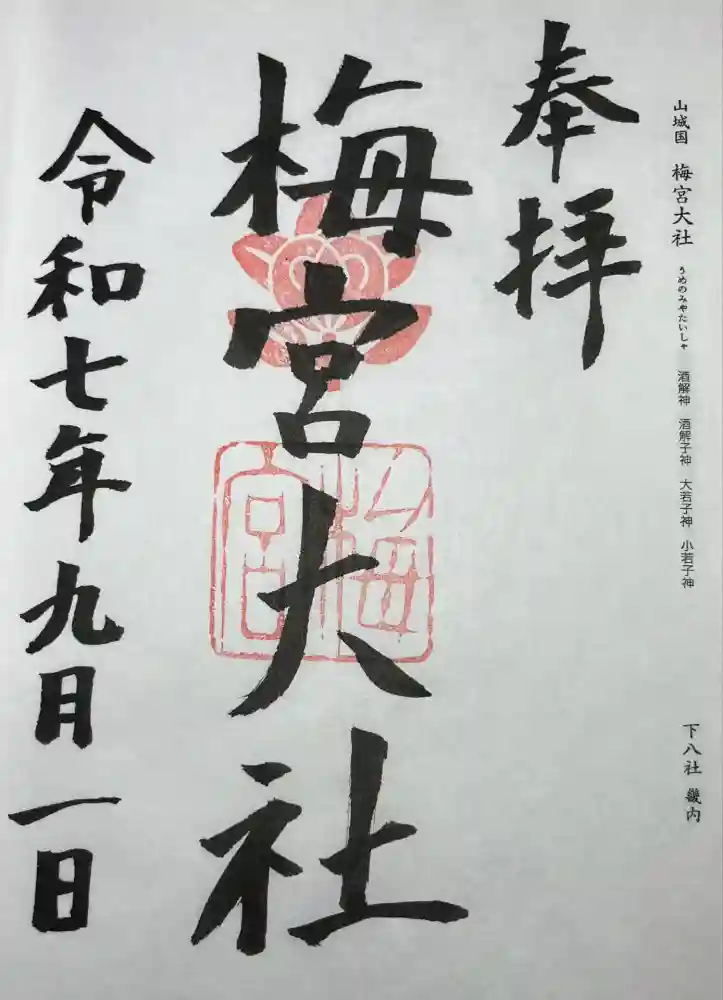 山城国 梅宮大社 うめのみやたいしゃ 酒解神 酒解子神 大若子神 小若子神
下八社 畿内
奉拝
梅宮大社
梅宮
令和七年九月一日